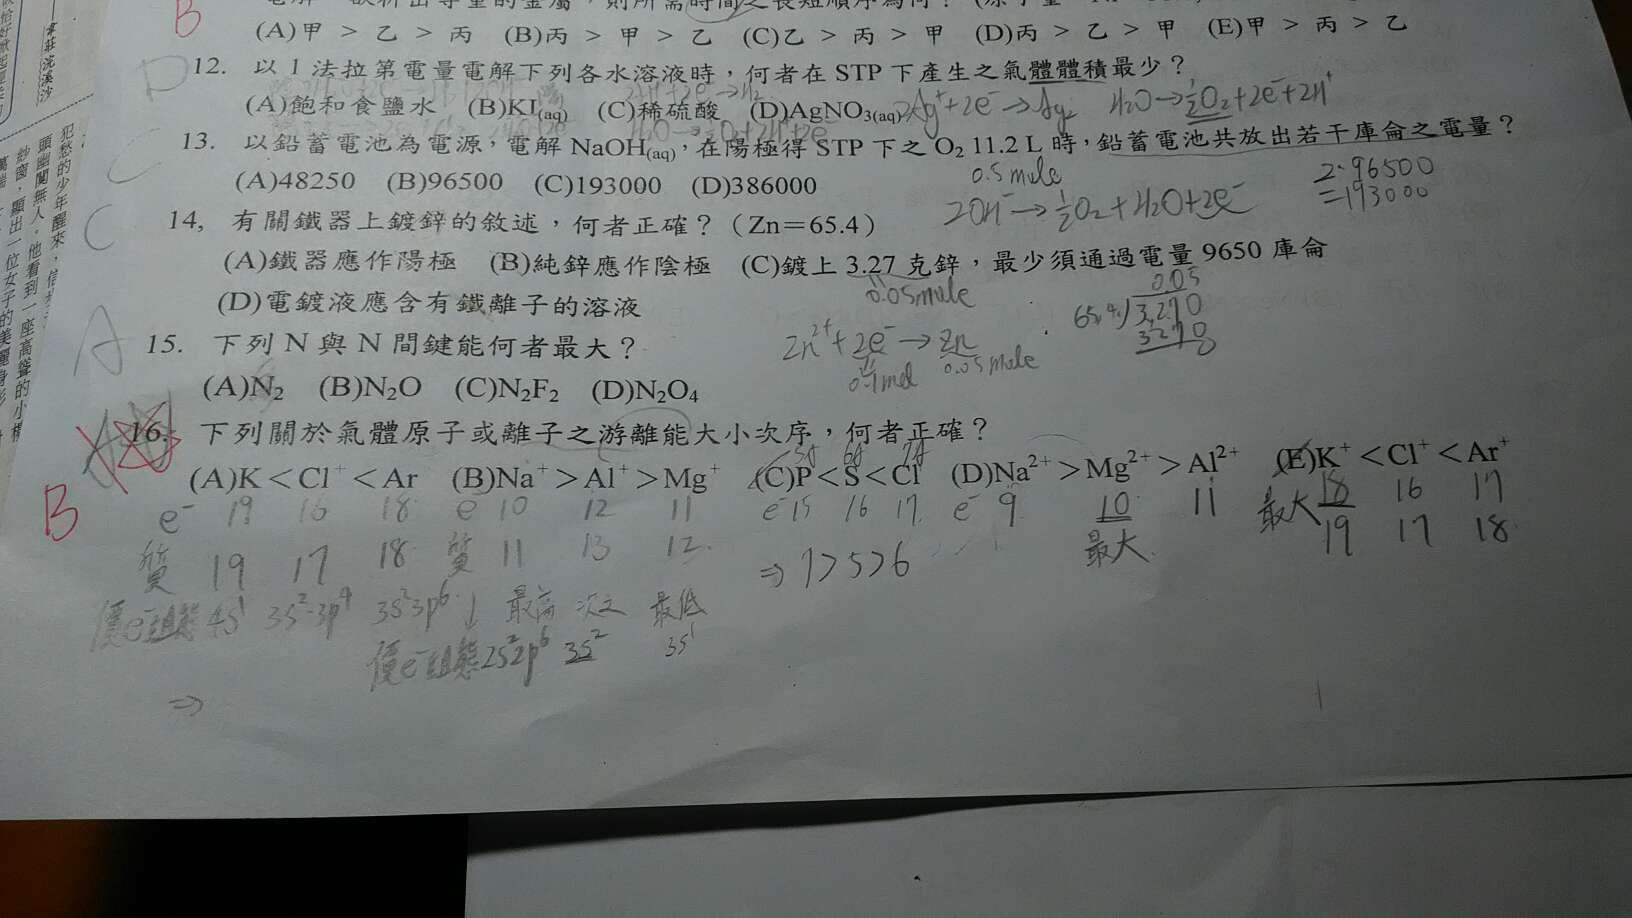 (A)甲 > 乙 > 丙 (B)丙 > 甲 > 乙 (C)乙 > 丙 > 甲 (D)丙 > 乙 > 甲 (E)甲 > 丙 > 乙
B
12. 以 1 法拉第電量電解下列各水溶液時，何者在 STP 下產生之氣體體積最少？
D
(A)飽和食鹽水 (B)KI(aq) (C)稀硫酸 (D)AgNO3(aq)
2Ag⁺+2e⁻→Ag2 H2O→½O2+2e⁻+2H⁺
13. 以鉛蓄電池為電源，電解 NaOH(aq)，在陽極得 STP 下之 O2 11.2 L 時，鉛蓄電池共放出若干庫侖之電量？
C
(A)48250 (B)96500 (C)193000 (D)386000
0.5 mole
2OH⁻→½O2+H2O+2e⁻
2·96500
=193000
14, 有關鐵器上鍍鋅的敘述，何者正確？（Zn＝65.4）
C
(A)鐵器應作陽極 (B)純鋅應作陰極 (C)鍍上 3.27 克鋅，最少須通過電量 9650 庫侖
(D)電鍍液應含有鐵離子的溶液
0.05mole
Zn²⁺+2e⁻→Zn
0.1mol 0.05mole
0.05
65.4)3.270
3270
15. 下列 N 與 N 間鍵能何者最大？
A
(A)N2 (B)N2O (C)N2F2 (D)N2O4
16. 下列關於氣體原子或離子之游離能大小次序，何者正確？
B
(A)K＜Cl⁺＜Ar (B)Na⁺＞Al⁺＞Mg⁺ (C)P＜S＜Cl (D)Na²⁺＞Mg²⁺＞Al²⁺ (E)K⁺＜Cl⁺＜Ar⁺
5A 6A 7A
e⁻ 19 16 18 e 10 12 11 e⁻15 16 17 e⁻ 9 10 11 最大 18 16 17
質 19 17 18 質 11 13 12 ⇒ 7>5>6 最大 19 17 18
價e⁻組態 4s¹ 3s²3p⁴ 3s²3p⁶ ↓ 最高 次之 最低
價e⁻組態 2s²2p⁶ 3s² 3s¹
⇒